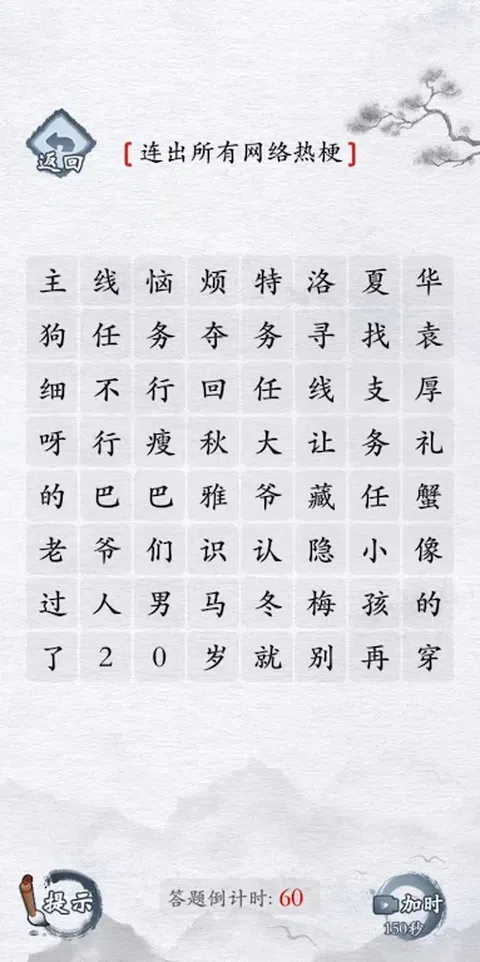 返回
[连出所有网络热梗]
主线恼烦特洛夏华
狗任务夺务寻找袁
细不行回任线支厚
呀行瘦秋大让务礼
的巴巴雅爷藏任蟹
老爷们识认隐小像
过人男马冬梅孩的
了20岁就别再穿
提示
答题倒计时: 60
加时
150秒